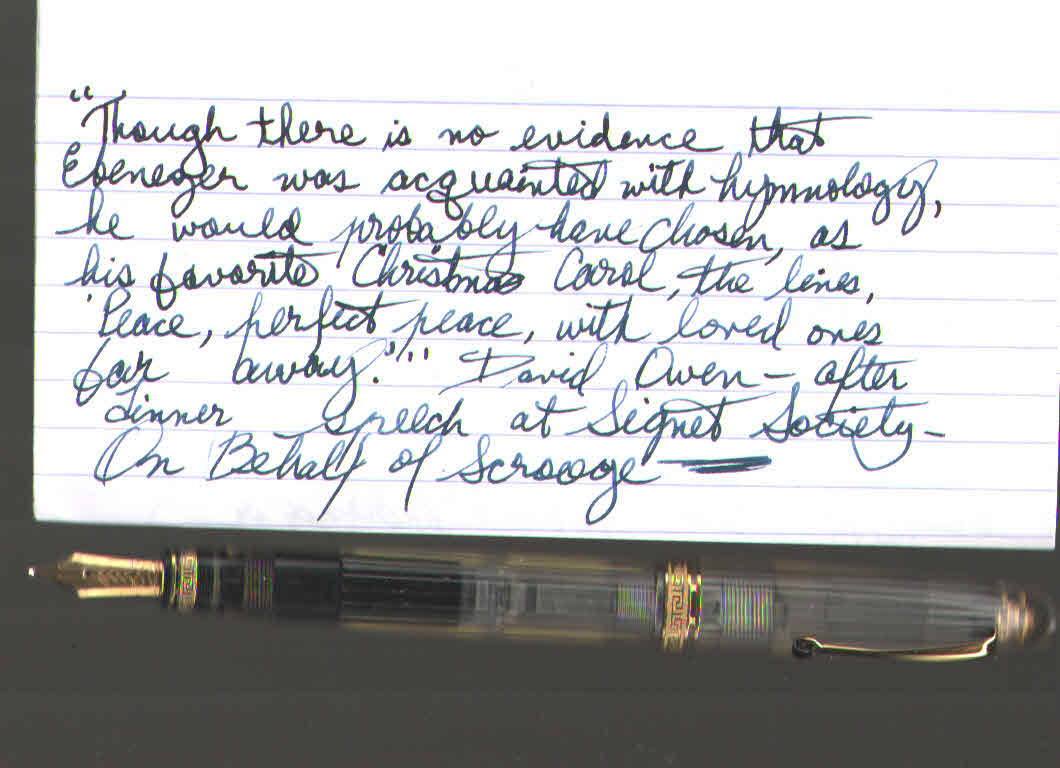 “Though there is no evidence that
Ebenezer was acquainted with hymnology,
he would probably have chosen, as
his favorite Christmas Carol, the lines,
'Peace, perfect peace, with loved ones
far away.'" David Owen – after
dinner speech at Signet Society –
On Behalf of Scrooge